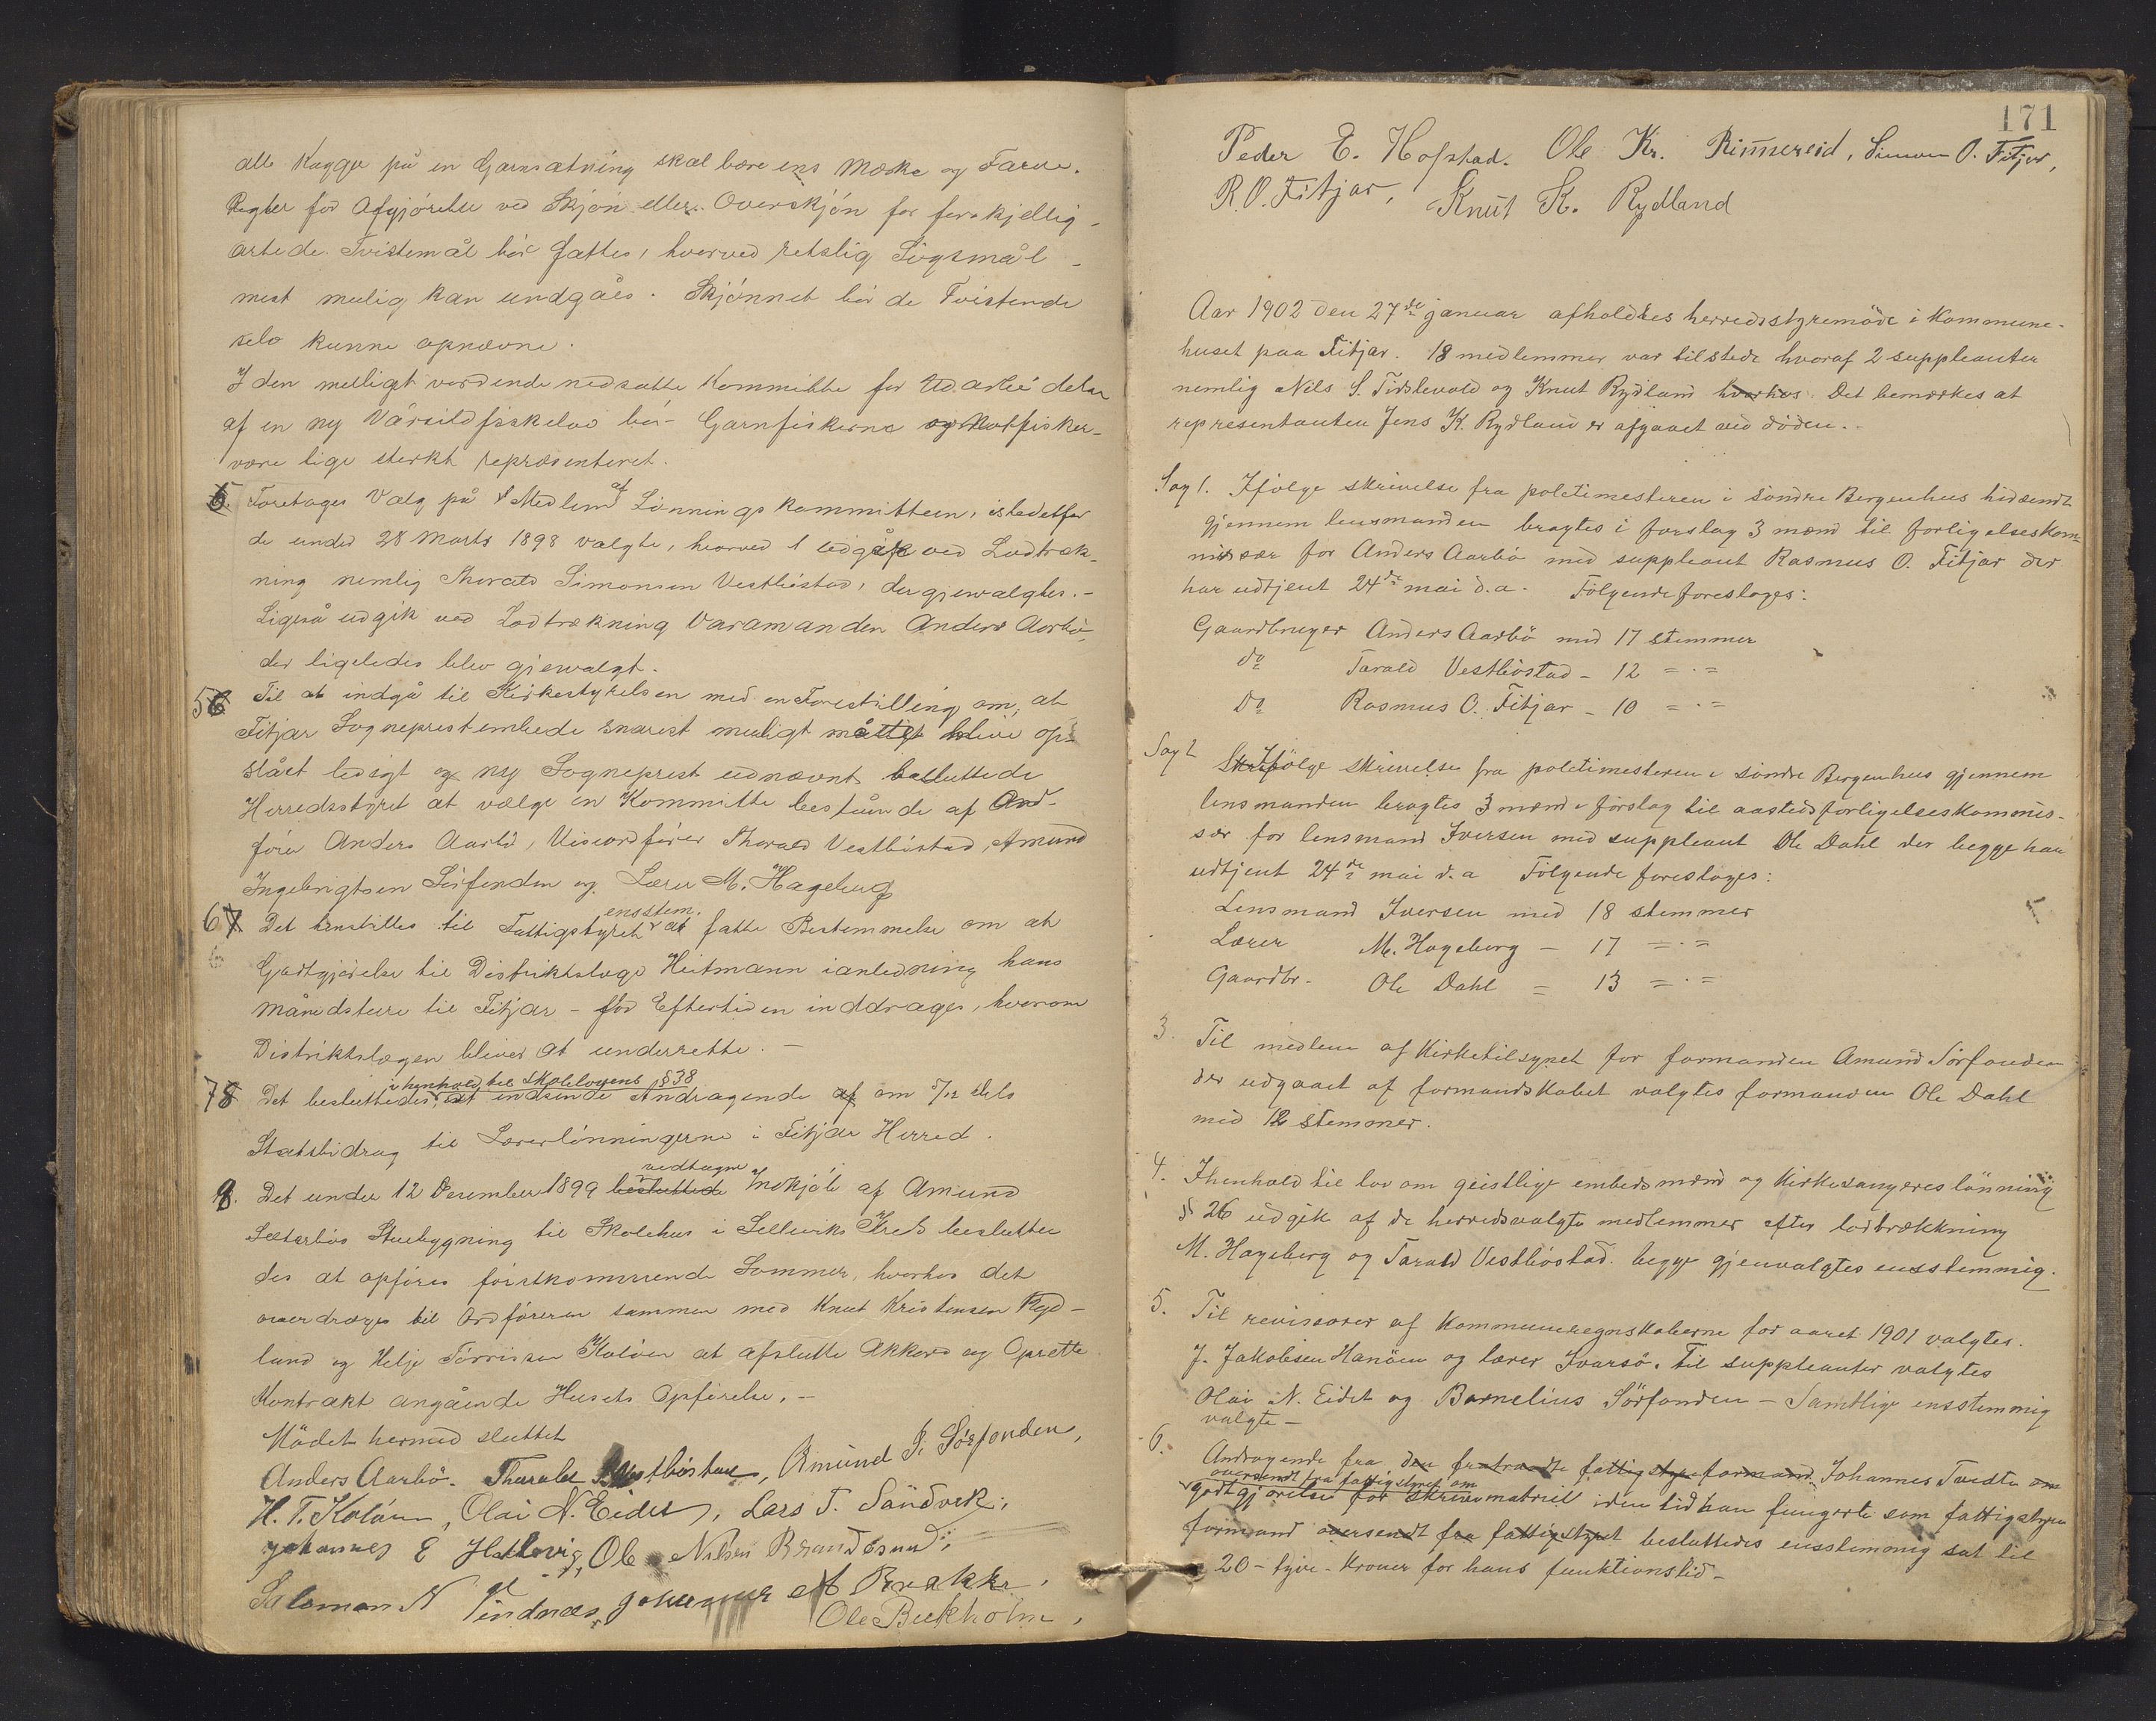 alle Kagger på en Garnsætning skal bære ens Mærke og Farve.
Regler for Afgjörelse ved Skjön eller Overskjön for forskjellig-
artede Tvistemål bör fattes, hvorved retslig Sögsmål
mest mulig kan undgåes. Skjönnet bör de Tvistende
selv kunne opnævne.
I den muligt vordende nedsatte Kommitte for Udarbeidelse
af en ny Vårsildfiskelov bör Garnfiskerne og Notfisker-
være lige sterkt repræsenteret.
5. Foretages Valg på 1 Medlem af Lönningskommitteen, istedetfor
de under 28 Marts 1898 valgte, hvorved 1 udgik ved Lodtræk-
ning nemlig Thorald Simonsen Vestböstad, der gjenvalgtes.-
Ligeså udgik ved Lodtrækning Varamanden Anders Aarbö
der ligeledes blev gjenvalgt.
56 Til at indgå til Kirkestyrelsen med en Forestilling om, at
Fitjar Sogneprestembede snarest muligt måtte blive op-
slået ledigt og ny Sogneprest udnævnt besluttede
Herredsstyret at vælge en Kommitte bestående af Ord-
förer Anders Aarbö, Viseordförer Thorald Vestböstad, Amund
Ingebrigtsen Sörfonden og Lærer M. Hageberg
67 Det henstilles til Fattigstyret enstem. at fatte Bestemmelse om at
Godtgjörelse til Distriktslæge Heitmann ianledning hans
månedsture til Fitjar - for Eftertiden inddrages, hvorom
Distriktslægen bliver at underrette. -
78 Det besluttedes i henhold til Skolelovens § 38 at indsende Andragende af om 5/12 dels
Statsbidrag til Lærerlönningerne i Fitjar Herred.
8. Det under 12 December 1899 besluttede vedtagne Indkjöb af Amund
Sæterbös Stuebygning til Skolehus i Selleviks Kreds beslutte
des at opföres förstkommende Sommer, hvorhos det
overdrages til Ordföreren sammen med Knut Kristensen Ryd-
land og Helje Törrissen Kolöen at afslutte Akkord og Oprette
Kontrakt angående Husets Opförelse. -
Mödet hermed sluttet
Anders Aarbö. Tharald S. Vestböstad, Amund I. Sörfonden,
H. T. Kolöen, Olai N. Eidet, Lars T. Sandvik,
Johannes E Hellevig, Ole Nilsen Brandesund,
Salomon N Vindnes, Johannes A Brakke,
Ole Bukholm,
171
Peder E. Hofstad. Ole Kr. Rimmereid, Simon O. Fitjar,
R. O. Fitjar, Knut K. Rydland
Aar 1902 den 27de januar afholdtes herredsstyremöde i Kommune-
huset paa Fitjar. 18 medlemmer var tilstede hvoraf 2 suppleanter
nemlig Nils S. Tislevold og Knut Rydland hvorhos Det bemærkes at
representanten Jens K. Rydland er afgaaet ved döden.-
Sag 1. Ifölge skrivelse fra politimesteren i Söndre Bergenhus hidsendt
gjennem lensmanden bragtes i forslag 3 mænd til forligelseskom-
missær for Anders Aarbö med suppleant Rasmus O. Fitjar der
har udtjent 24de mai d.a. Fölgende foresloges:
Gaardbruger Anders Aarbö med 17 stemmer
do Tarald Vestböstad - 12 = . =
Do Rasmus O. Fitjar - 10 = . =
Sag 2 Skr Ifölge skrivelse fra politimesteren i söndre Bergenhus gjennem
lensmanden bragtes 3 mænd i forslag til aastedsforligelseskommis-
sær for lensmand Iversen med suppleant Ole Dahl der begge har
udtjent 24de mai d. a Fölgende foresloges:
Lensmand Iversen med 18 stemmer
Lærer M. Hageberg - 17 = . =
Gaardbr. Ole Dahl = 13 = . =
3. Til medlem af Kirketilsynet for formanden Amund Sörfonden
der udgaaet af formandskabet valgtes formanden Ole Dahl
med 12 stemmer.
4. Ihenhold til lov om geistlige embedsmænd og Kirkesangeres lönning
§ 26 udgik af de herredsvalgte medlemmer efter lodtrækkning
M. Hageberg og Tarald Vestböstad. begge gjenvalgtes ensstemmig.
5. Til revisorer af Kommuneregnskaberne for aaret 1901 valgtes.
J. Jakobsen Hanöen og lærer Ivarsö. Til suppleanter valgtes
Olai N. Eidet og Bornelius Sörfonden - Samtlige ensstemmig
valgte -
6. Andragende fra den fratraadte fattigstyreformand Johannes Tvedte om
oversendt fra fattigstyret om
godtgjörelse for skrivematriel i den tid han fungerte som fattigstyre
formand oversendt fra fattigstyret besluttedes ensstemmig sat til
20 - tyve - Kroner for hans funktionstid -